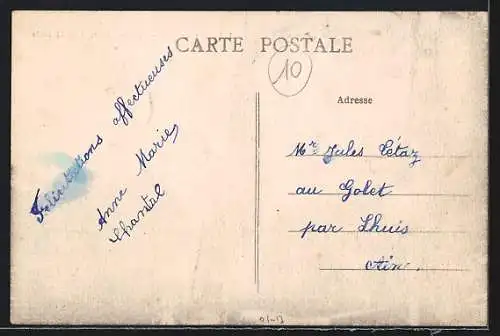 CARTE POSTALE
10
Adresse
Félicitations affectueuses
Anne Marie
Chantal
Mr Jules Tétaz
au Golet
par Lhuis
Ain